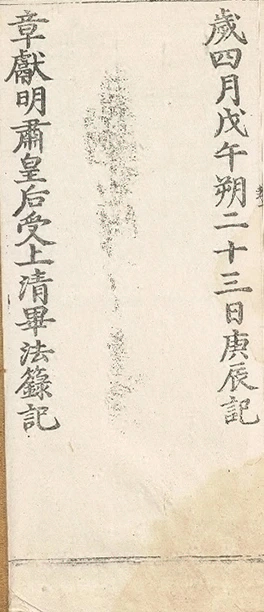 歲四月戊午朔二十三日庚辰記
章獻明肅皇后受上清畢法籙記